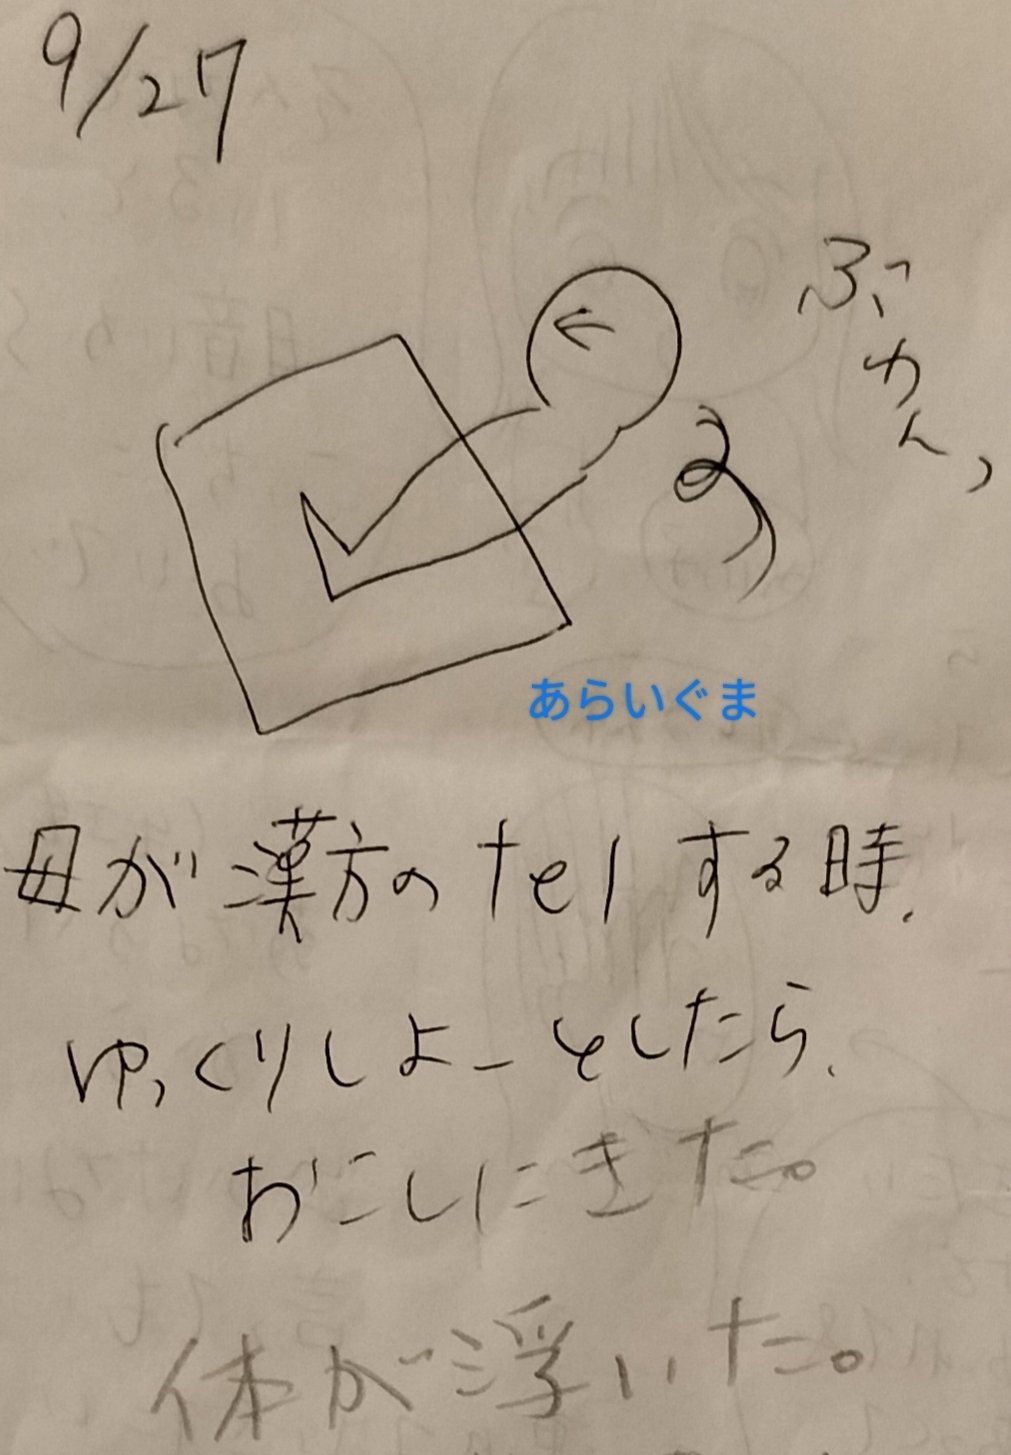 9/27
ぶわんっ
あらいぐま
母が漢方のtelする時、
ゆっくりしよーとしたら、
おこしにきた。
体が浮いた。